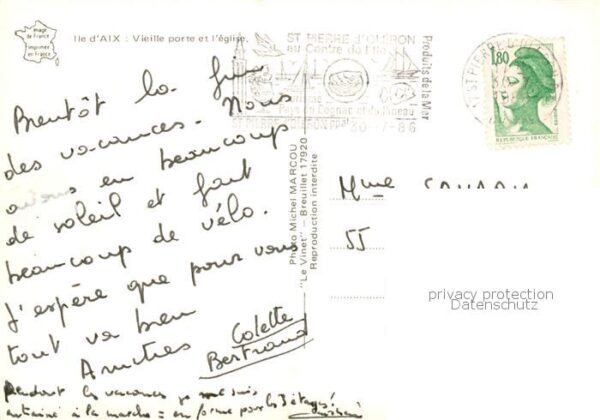 Image
de France
Imprimée
en France
Ile d'AIX : Vieille porte et l'église.
ST PIERRE D'OLERON
au Centre de l'Ile
Produits de la Mer
Pays du Cognac et du Pineau
30-7-86
1,80
REPUBLIQUE FRANÇAISE
Bientôt la fin
des vacances. Nous
avons eu beaucoup
de soleil et fait
beaucoup de vélo.
J'espère que pour vous
tout va bien
Amitiés
Colette
Bertrand
Pendant les vacances je me suis
entrainé à la marche = en forme pour les 3 étages!
Photo Michel MARCOU
"Le Vinet" - Breuillet 17920
Reproduction interdite
Mme
55
privacy protection
Datenschutz